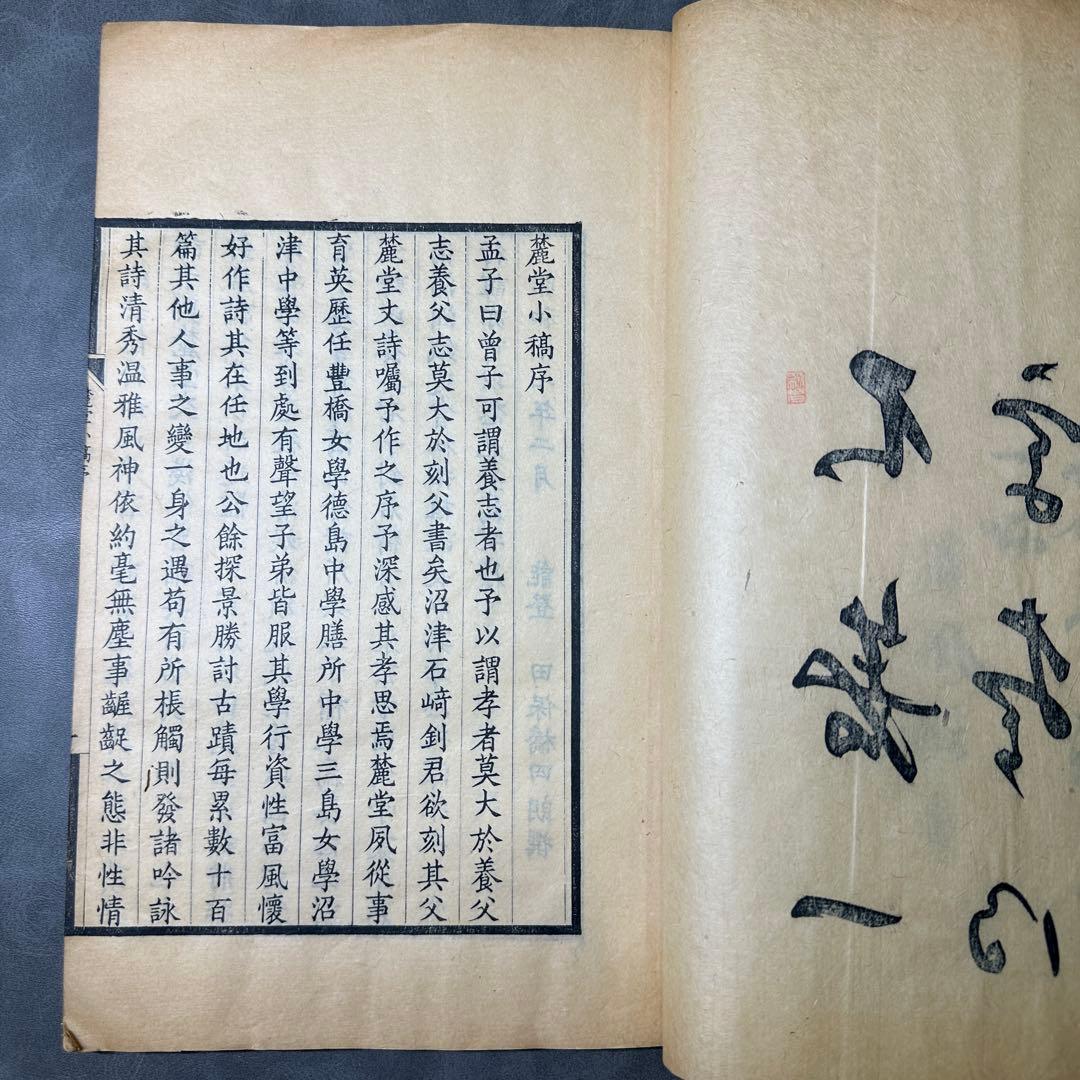 麓堂小稿序
孟子曰曾子可謂養志者也予以謂孝者莫大於養父
志養父志莫大於刻父書矣沼津石﨑釗君欲刻其父
麓堂丈詩囑予作之序予深感其孝思焉麓堂夙從事
育英歷任豐橋女學德島中學膳所中學三島女學沼
津中學等到處有聲望子弟皆服其學行資性富風懷
好作詩其在任地也公餘探景勝討古蹟每累數十百
篇其他人事之變一身之遇苟有所棖觸則發諸吟詠
其詩清秀溫雅風神依約毫無塵事齷齪之態非性情